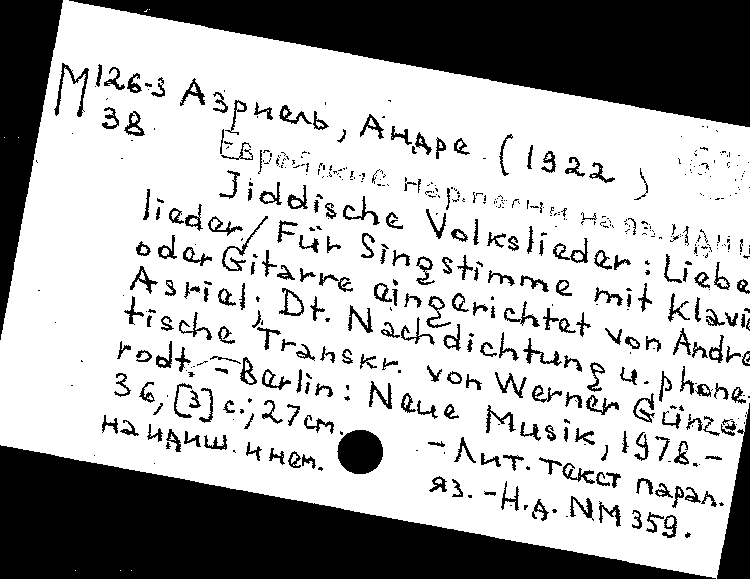 М 126-3 Азриель, Андре (1922 )
38
Еврейские нар. песни на яз. идиш
Jiddische Volkslieder: Liebe
lieder / Für Singstimme mit Klavi
oder Gitarre eingerichtet von Andre
Asriel; Dt. Nachdichtung u. phone
tische Transkr. von Werner Günze-
rodt. – Berlin: Neue Musik, 1978. –
36, [3] с.; 27 cm. – Лит. текст парал.
на идиш. и нем. яз. – Н.д. NM 359.